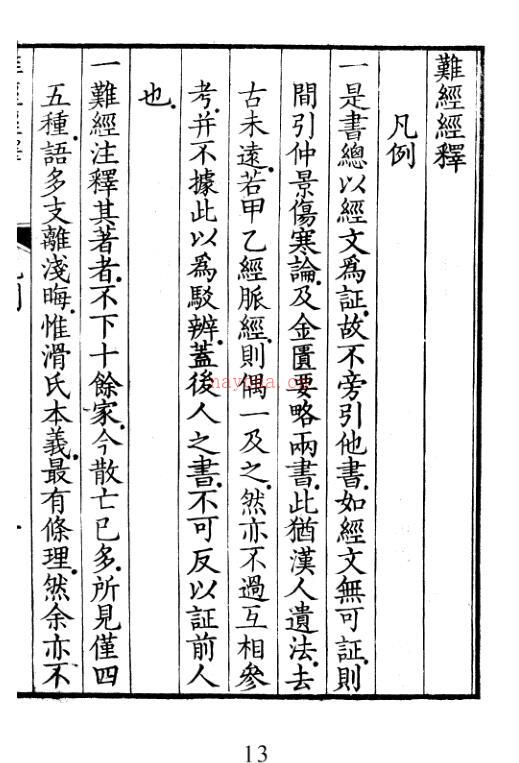 難經經釋
凡例
一是書總以經文爲証.故不旁引他書.如經文無可証.則
間引仲景傷寒論.及金匱要略兩書.此猶漢人遺法.去
古未遠.若甲乙經脈經.則偶一及之.然亦不過互相參
考.并不據此以爲駁辨.蓋後人之書.不可反以証前人
也.
一難經注釋其著者.不下十餘家.今散亡已多.所見僅四
五種.語多支離淺晦.惟滑氏本義.最有條理.然余亦不
13